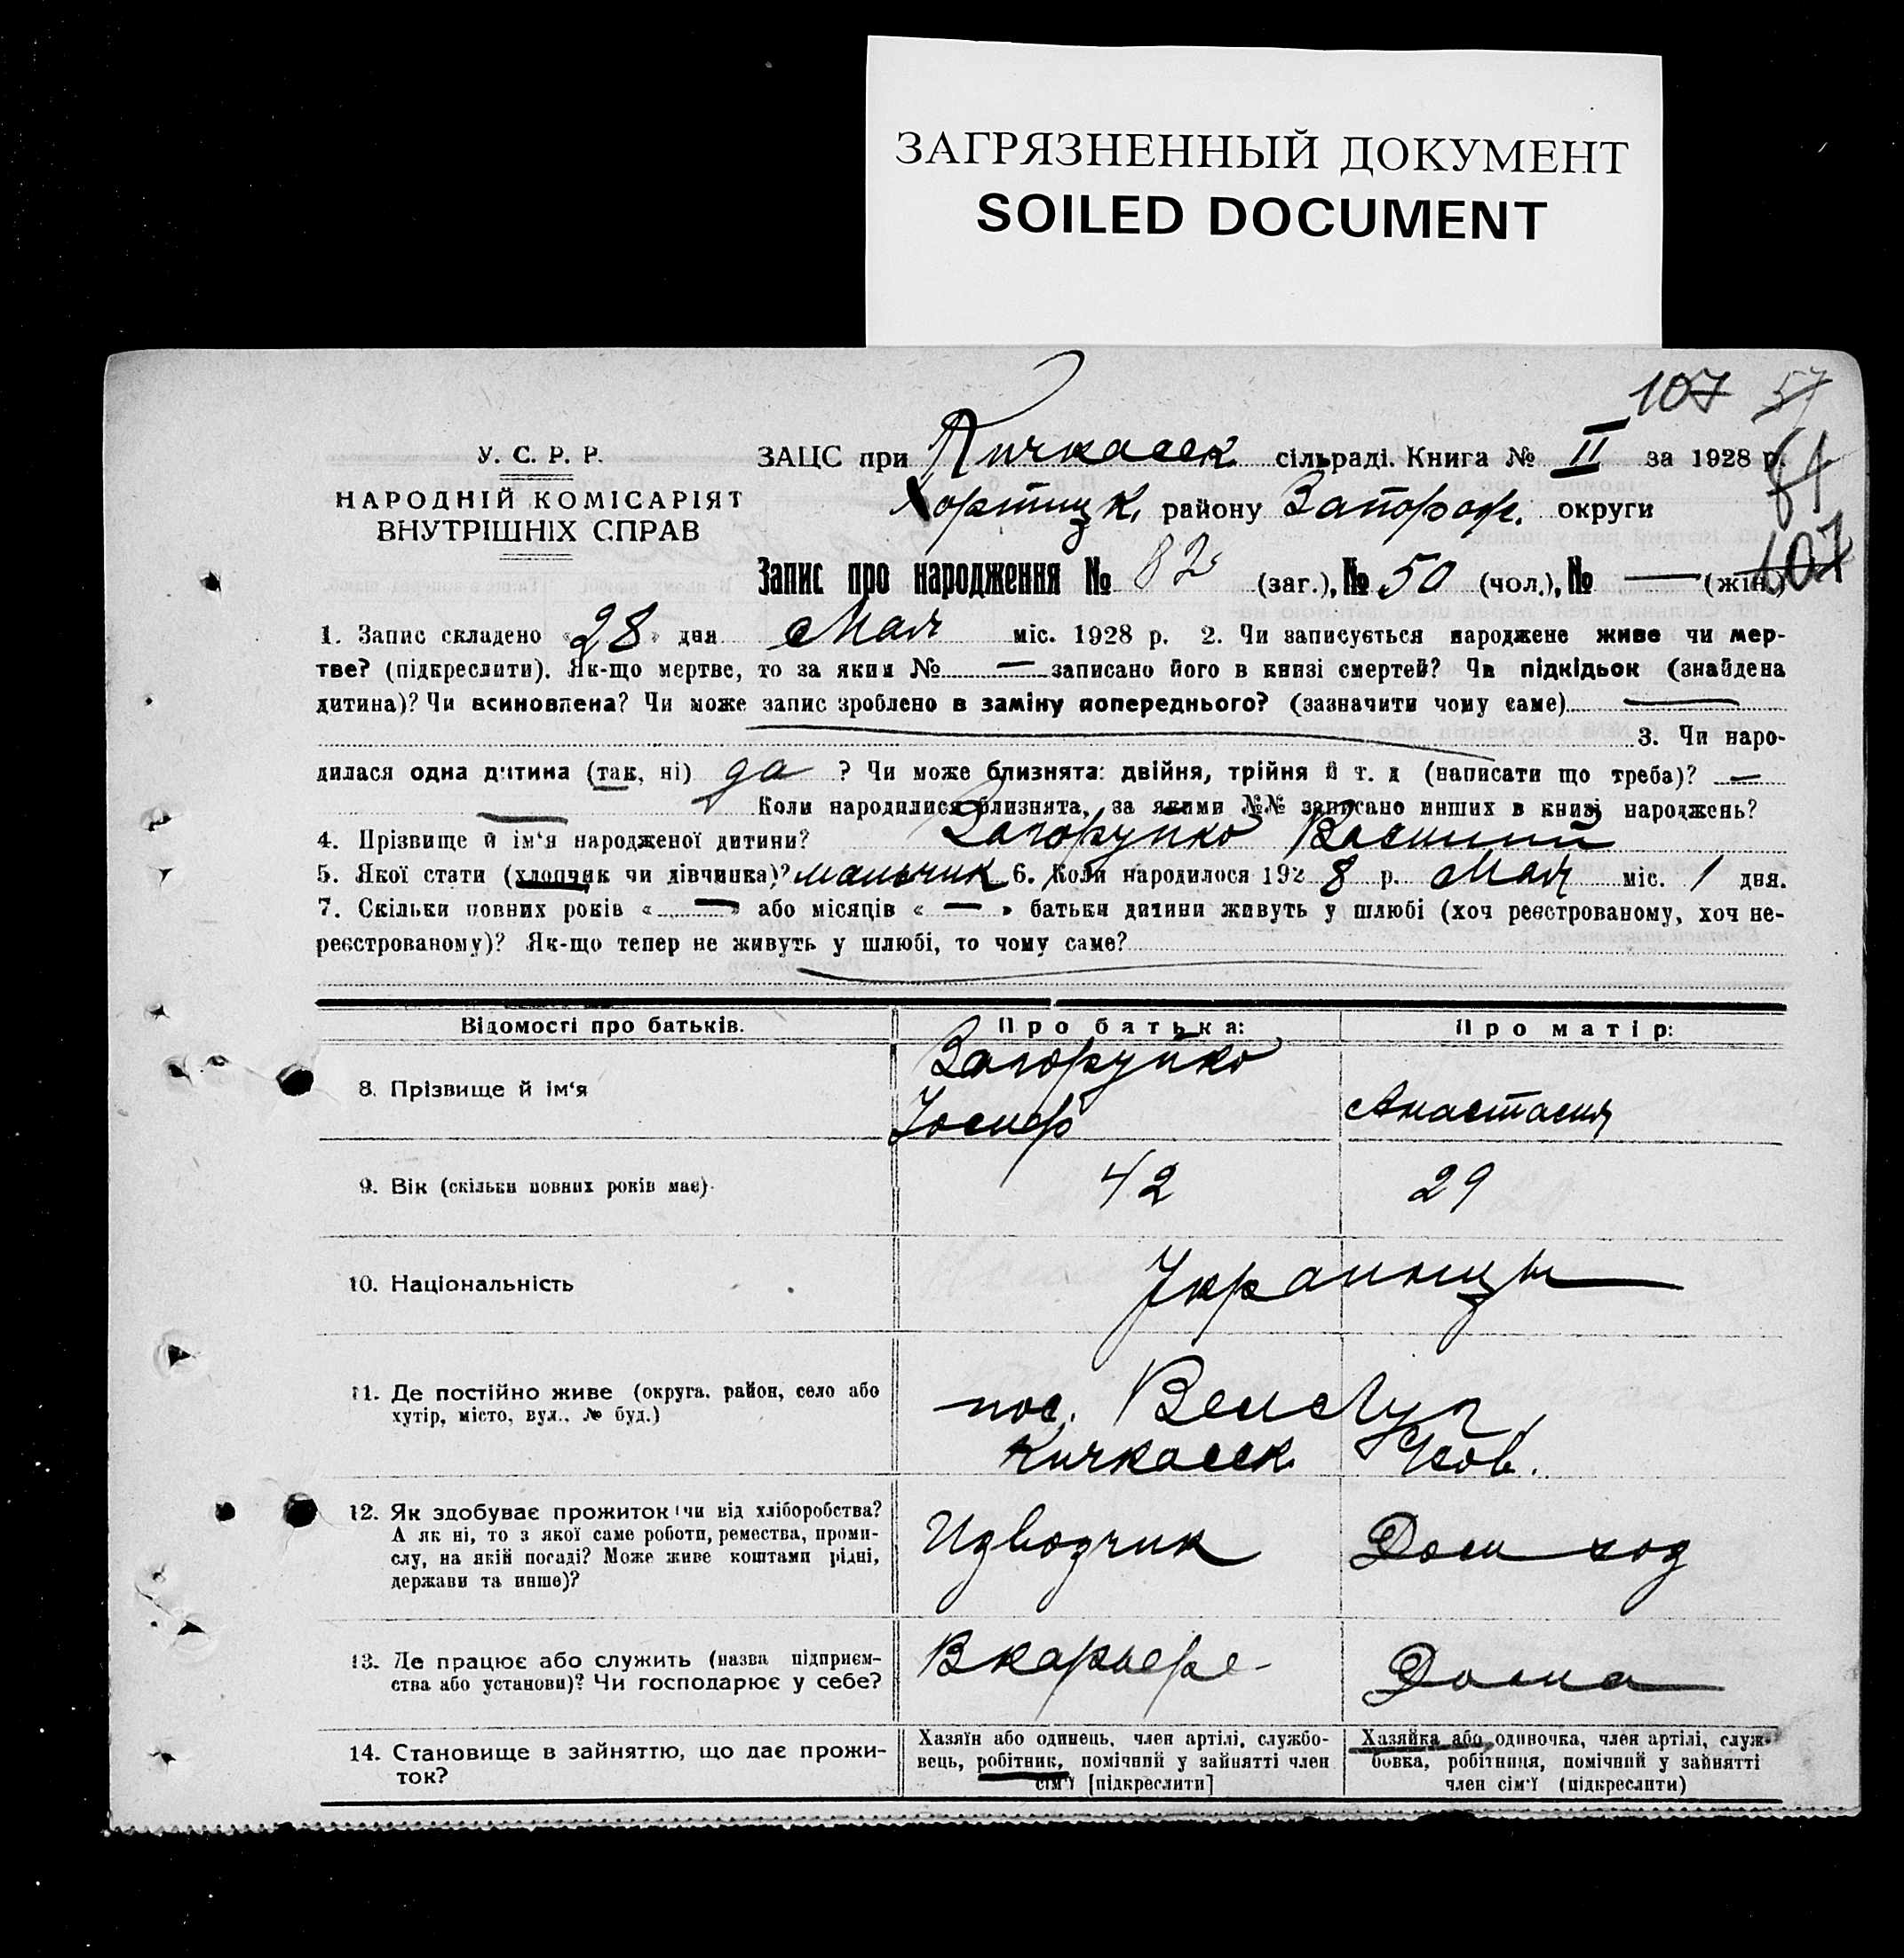 ЗАГРЯЗНЕННЫЙ ДОКУМЕНТ
SOILED DOCUMENT
107 57
У. С. Р. Р.
НАРОДНІЙ КОМІСАРІЯТ
ВНУТРІШНІХ СПРАВ
ЗАЦС при Кичкасск сільраді. Книга № II за 1928 р.
Хортицк. району Запорож. округи
61
107
Запис про народження № 82 (заг.), № 50 (чол.), № — (жін.)
1. Запис складено «28» дня Мая міс. 1928 р. 2. Чи записується народжене живе чи мер-
тве? (підкреслити). Як-що мертве, то за яким № — записано його в книзі смертей? Чи підкідьок (знайдена
дитина)? Чи всиновлена? Чи може запис зроблено в заміну попереднього? (зазначити чому саме) —
3. Чи наро-
дилася одна дитина (так, ні) да ? Чи може близнята: двійня, трійня й т. д (написати що треба)? —
— Коли народилися близнята, за якими №№ записано инших в книзі народжень?
4. Прізвище й ім'я народженої дитини? Загоруйко Василий
5. Якої стати (хлопчик чи дівчинка)? мальчик 6. Коли народилося 1928 р. Мая міс. 1 дня.
7. Скільки повних років «—» або місяців «—» батьки дитини живуть у шлюбі (хоч реєстрованому, хоч не-
реєстрованому)? Як-що тепер не живуть у шлюбі, то чому саме?
Відомості про батьків. Про батька: Про матір:
8. Прізвище й ім'я Загоруйко
Иосиф Анастасия
9. Вік (скільки повних років має) 42 29
10. Національність Украинцы
11. Де постійно живе (округа, район, село або
хутір, місто, вул., № буд.)
пос. Вел Луг
Кичкасск
12. Як здобуває прожиток чи від хліборобства?
А як ні, то з якої саме роботи, ремества, проми-
слу, на якій посаді? Може живе коштами рідні,
держави та инше)?
Извозчик Дом хоз
13. Де працює або служить (назва підприєм-
ства або установи)? Чи господарює у себе?
В карьере Дома
14. Становище в зайняттю, що дає прожи-
ток?
Хазяїн або одинець, член артілі, службо-
вець, робітник, помічний у зайнятті член
сім'ї [підкреслити]
Хазяйка або одиночка, член артілі, служ-
бовка, робітниця, помічний у зайнятті
член сім'ї (підкреслити)